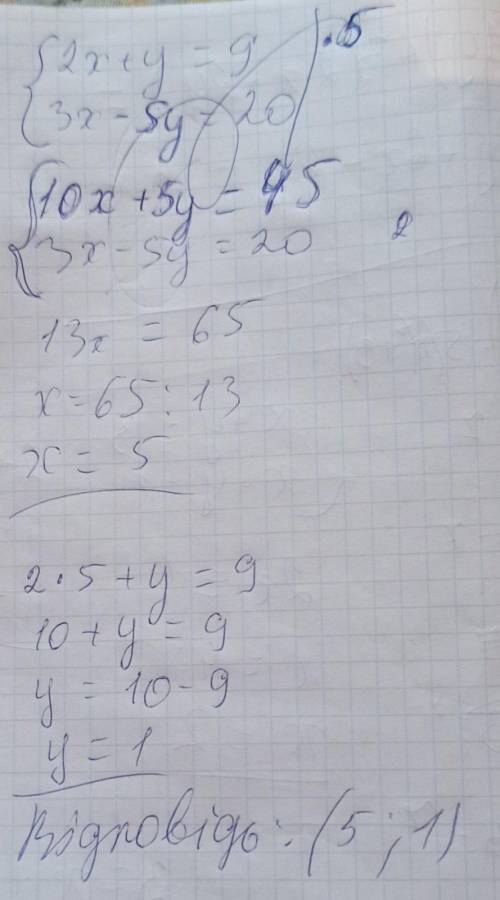 2x+y = 9 | ·5
3x-5y = 20
10x+5y = 45
3x-5y = 20
2
13x = 65
x=65:13
x = 5
2·5+y = 9
10+y = 9
y = 10-9
y = 1
Відповідь: (5; 1)